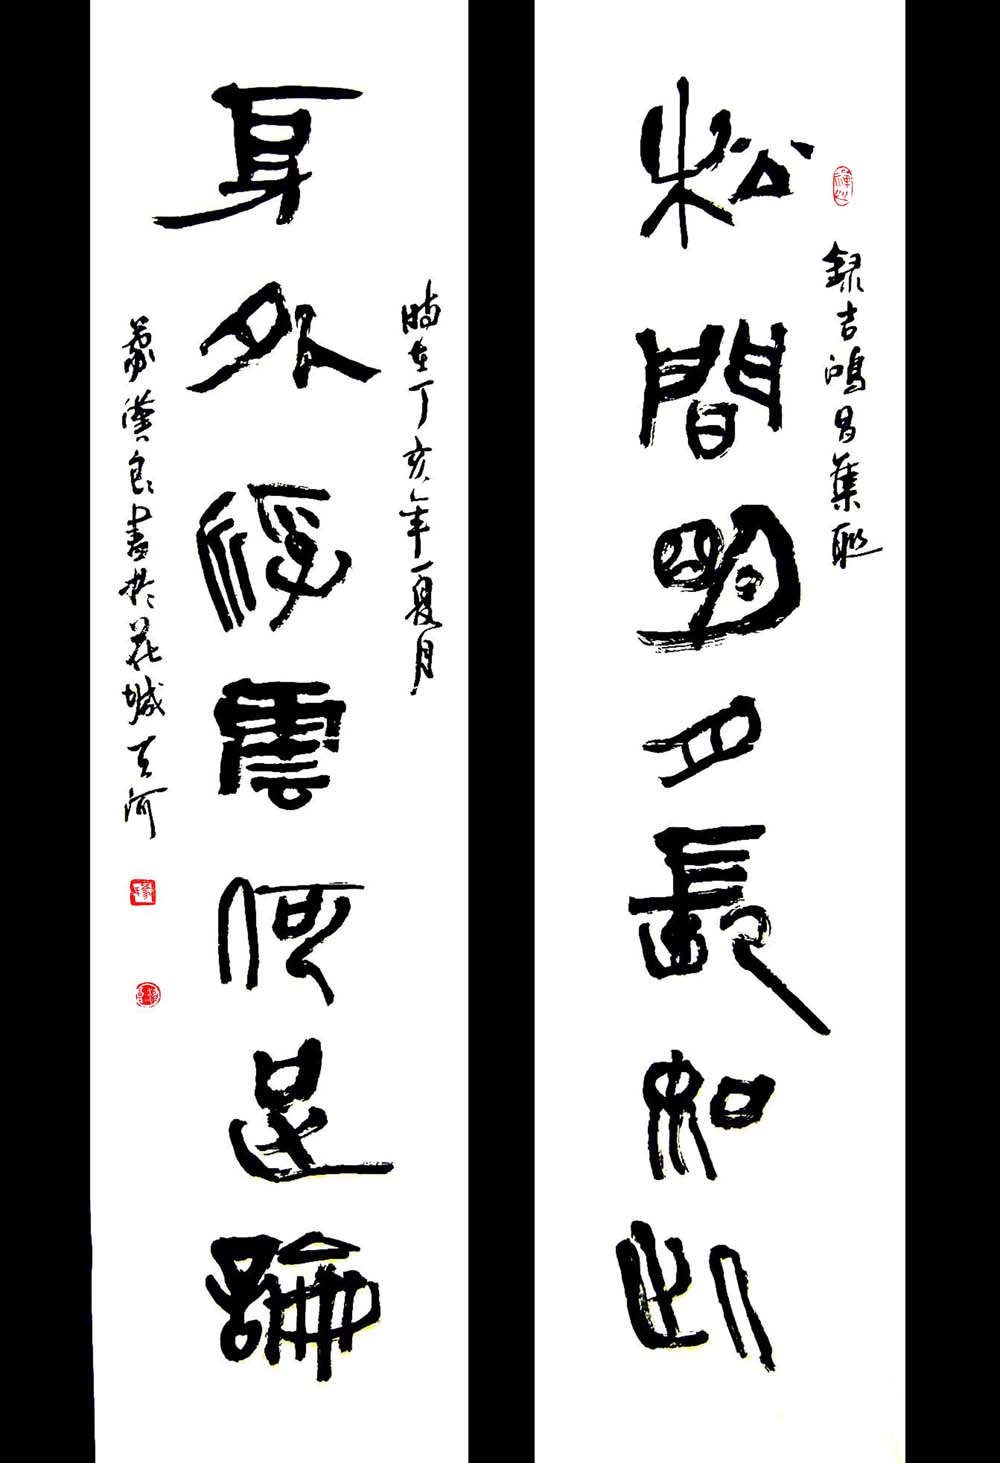 錄吉鴻昌集聯
松間明月長如此
時在丁亥年夏月
身外浮雲何足論
蒙漢良書於花城天河